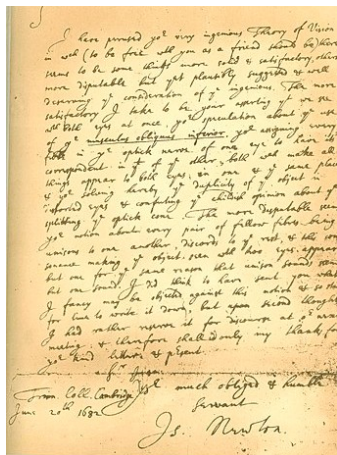 I have perused yor very ingenious Theory of Vision
in wch (to be free with you as a friend should be) there
seems to be some things more solid & satisfactory, others
more disputable but yet plausibly suggested & well
deserving ye consideration of ye ingenious. The more
satisfactory I take to be your asserting yt we see
with both eyes at once, yor speculation about ye use
of ye musculus obliquus inferior, yor assigning every
fibre in ye optick nerve of one eye to have its
correspondent in yt of ye other, both wch make all
things appear to both eyes in one & ye same place
& yor solving hereby ye duplicity of ye object in
distorted eyes & confuting ye childish opinion about ye
splitting ye optick cone. The more disputable seems
yor notion about every pair of fellow fibres being
unisons to one another, discords to ye rest, & this con-
sonance making ye object seen with two eyes appear
but one for ye same reason that unison sounds seem
but one sound. I did think to have sent you what
I fancy may be objected against this notion & so staid
for time to write it down, but upon second thoughts
I had rather reserve it for discourse at or next
meeting: & therefore shall add only my thanks for
yor kind letter & present.
Yor much obliged & humble
Trin. Coll. Cambridge
Servant
June 20th 1682
Is. Newton.